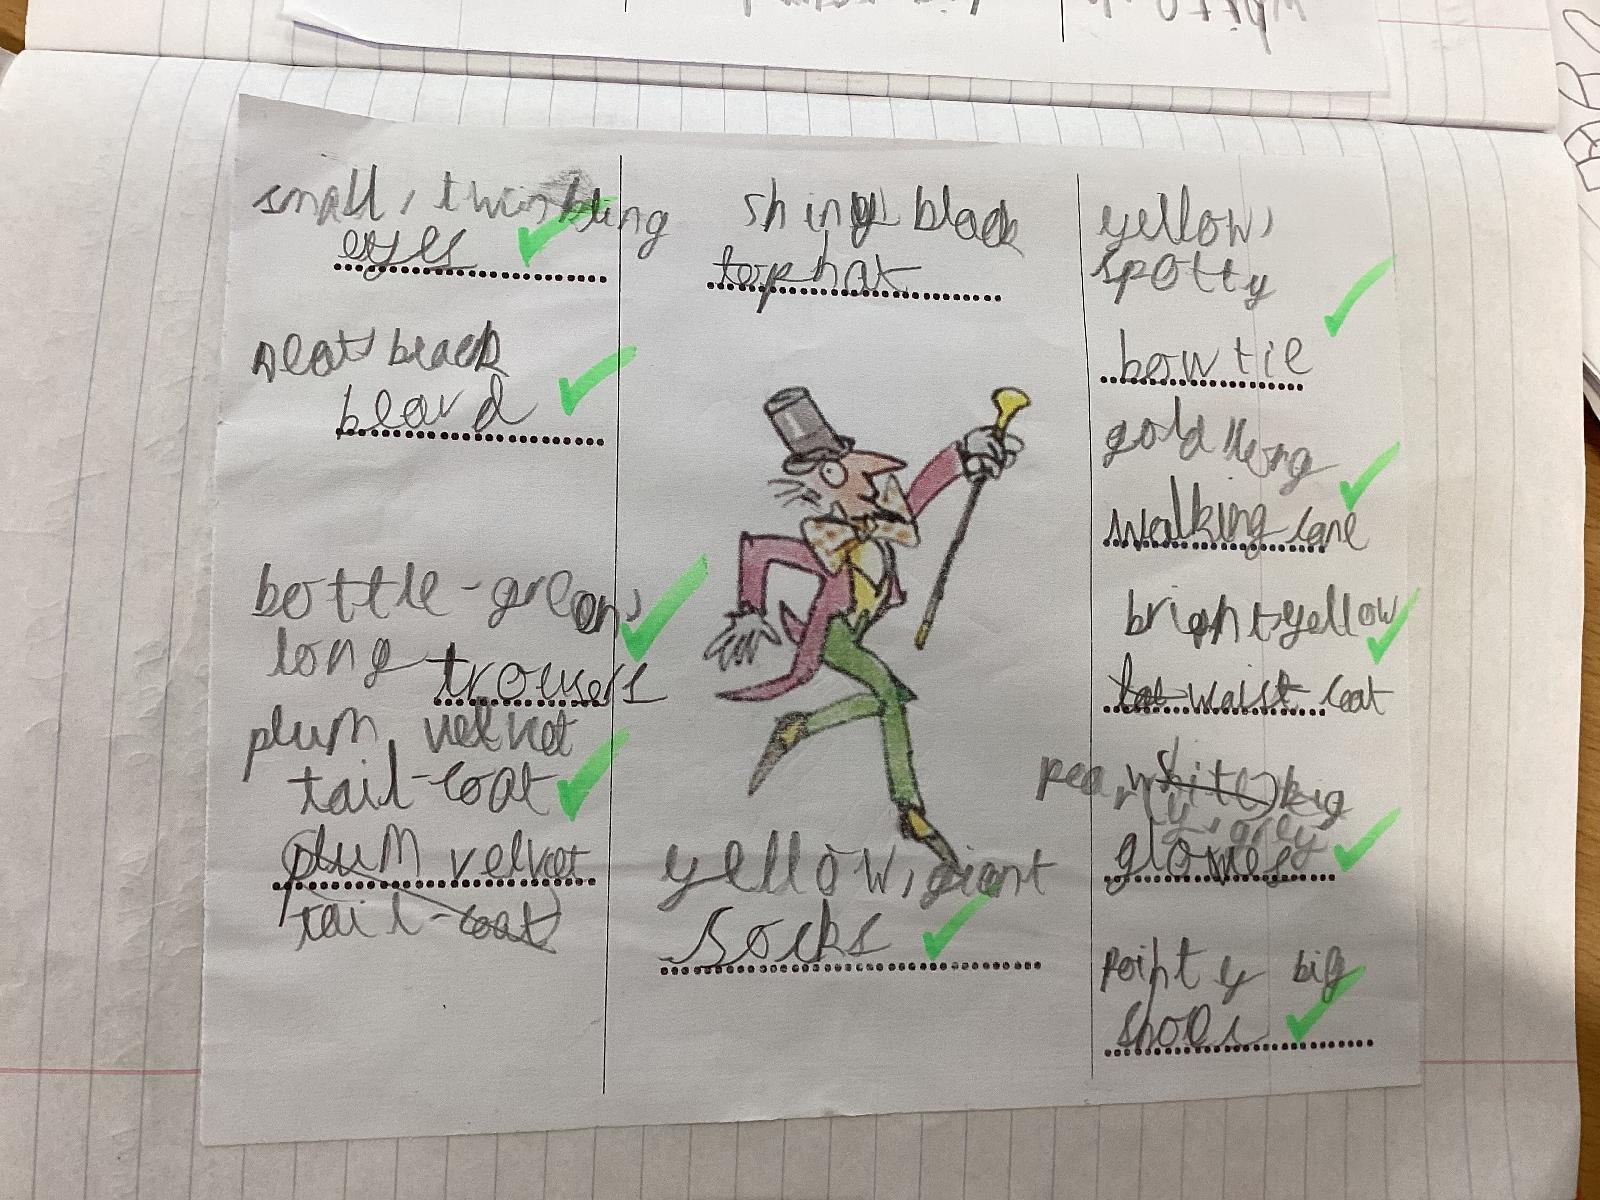 small, twinkling
eyes
neat black
beard
bottle-green,
long trousers
plum, velvet
tail-coat
plum velvet
tail-coat
shiny black
top hat
yellow, giant
socks
yellow,
spotty
bow tie
gold long
walking cane
bright yellow
waist coat
pearly, grey
gloves
pointy big
shoes